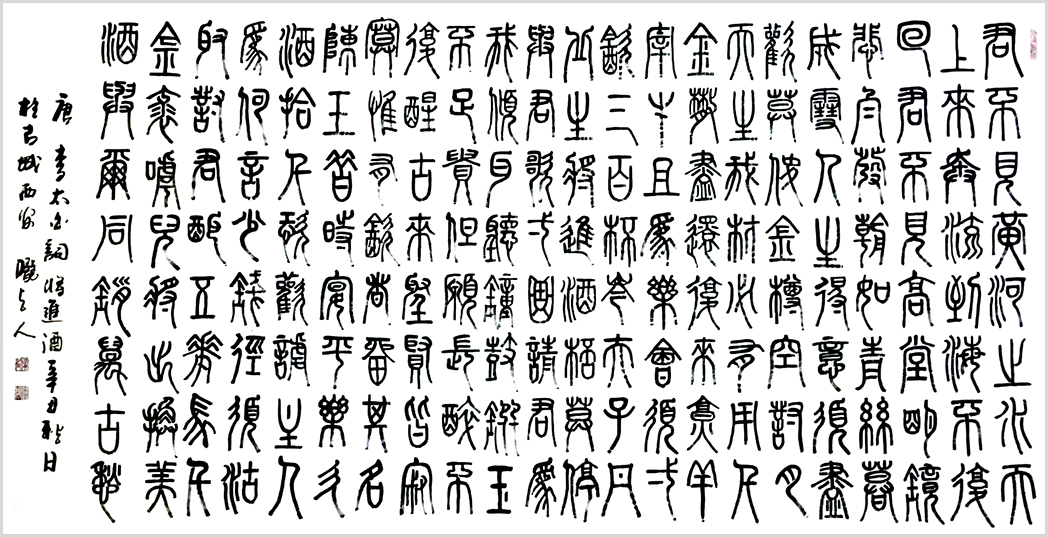 君不見黃河之水天
上來奔流到海不復
回君不見高堂明鏡
悲白髮朝如青絲暮
成雪人生得意須盡
歡莫使金樽空對月
天生我材必有用千
金散盡還復來烹羊
宰牛且為樂會須一
飲三百杯岑夫子丹
丘生將進酒杯莫停
與君歌一曲請君為
我傾耳聽鐘鼓饌玉
不足貴但願長醉不
復醒古來聖賢皆寂
寞惟有飲者留其名
陳王昔時宴平樂斗
酒拾千恣歡謔主人
為何言少錢徑須沽
取對君酌五花馬千
金裘呼兒將出換美
酒與爾同銷萬古愁
唐李太白詞將進酒辛丑秋日
於古城西安